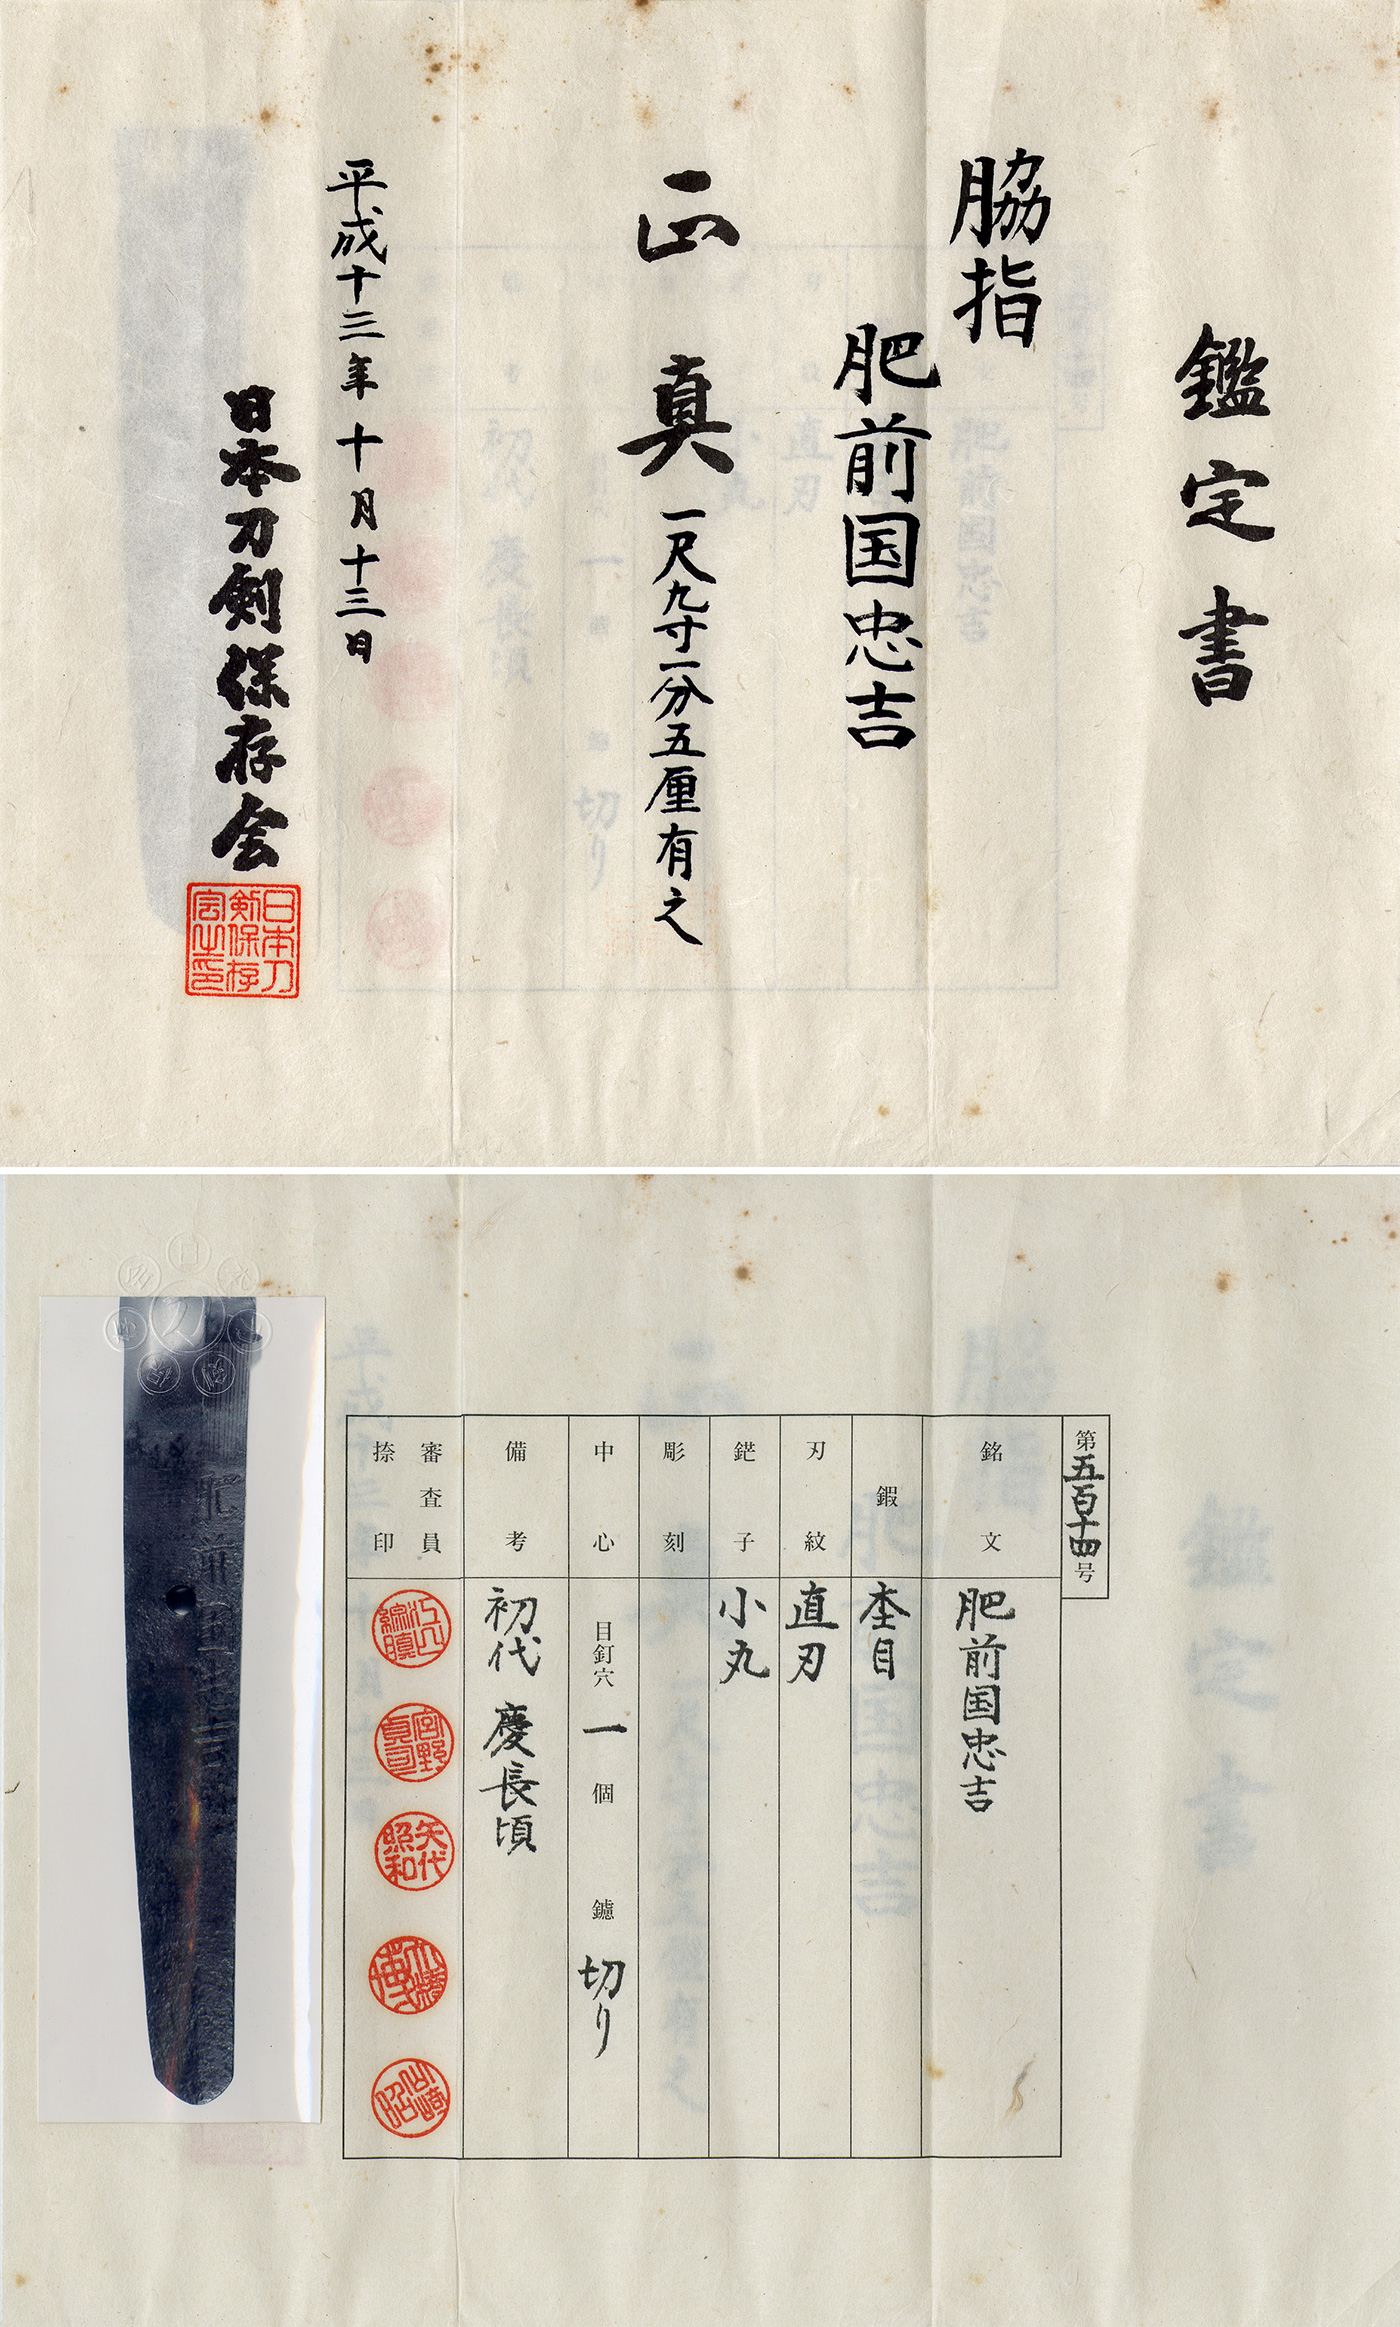 鑑定書
脇指
肥前国忠吉
正真
一尺九寸一分五厘有之
平成十三年十月十三日
日本刀剣保存会
日本刀
剣保存
会之印
第五百十四号
銘文
肥前国忠吉
鍜
杢目
刃紋
直刃
鋩子
小丸
彫刻
中心
目釘穴 一 個
鑢 切り
備考
初代 慶長頃
審査員
捺印
宮野
貞司
矢代
昭和
肥前国忠吉